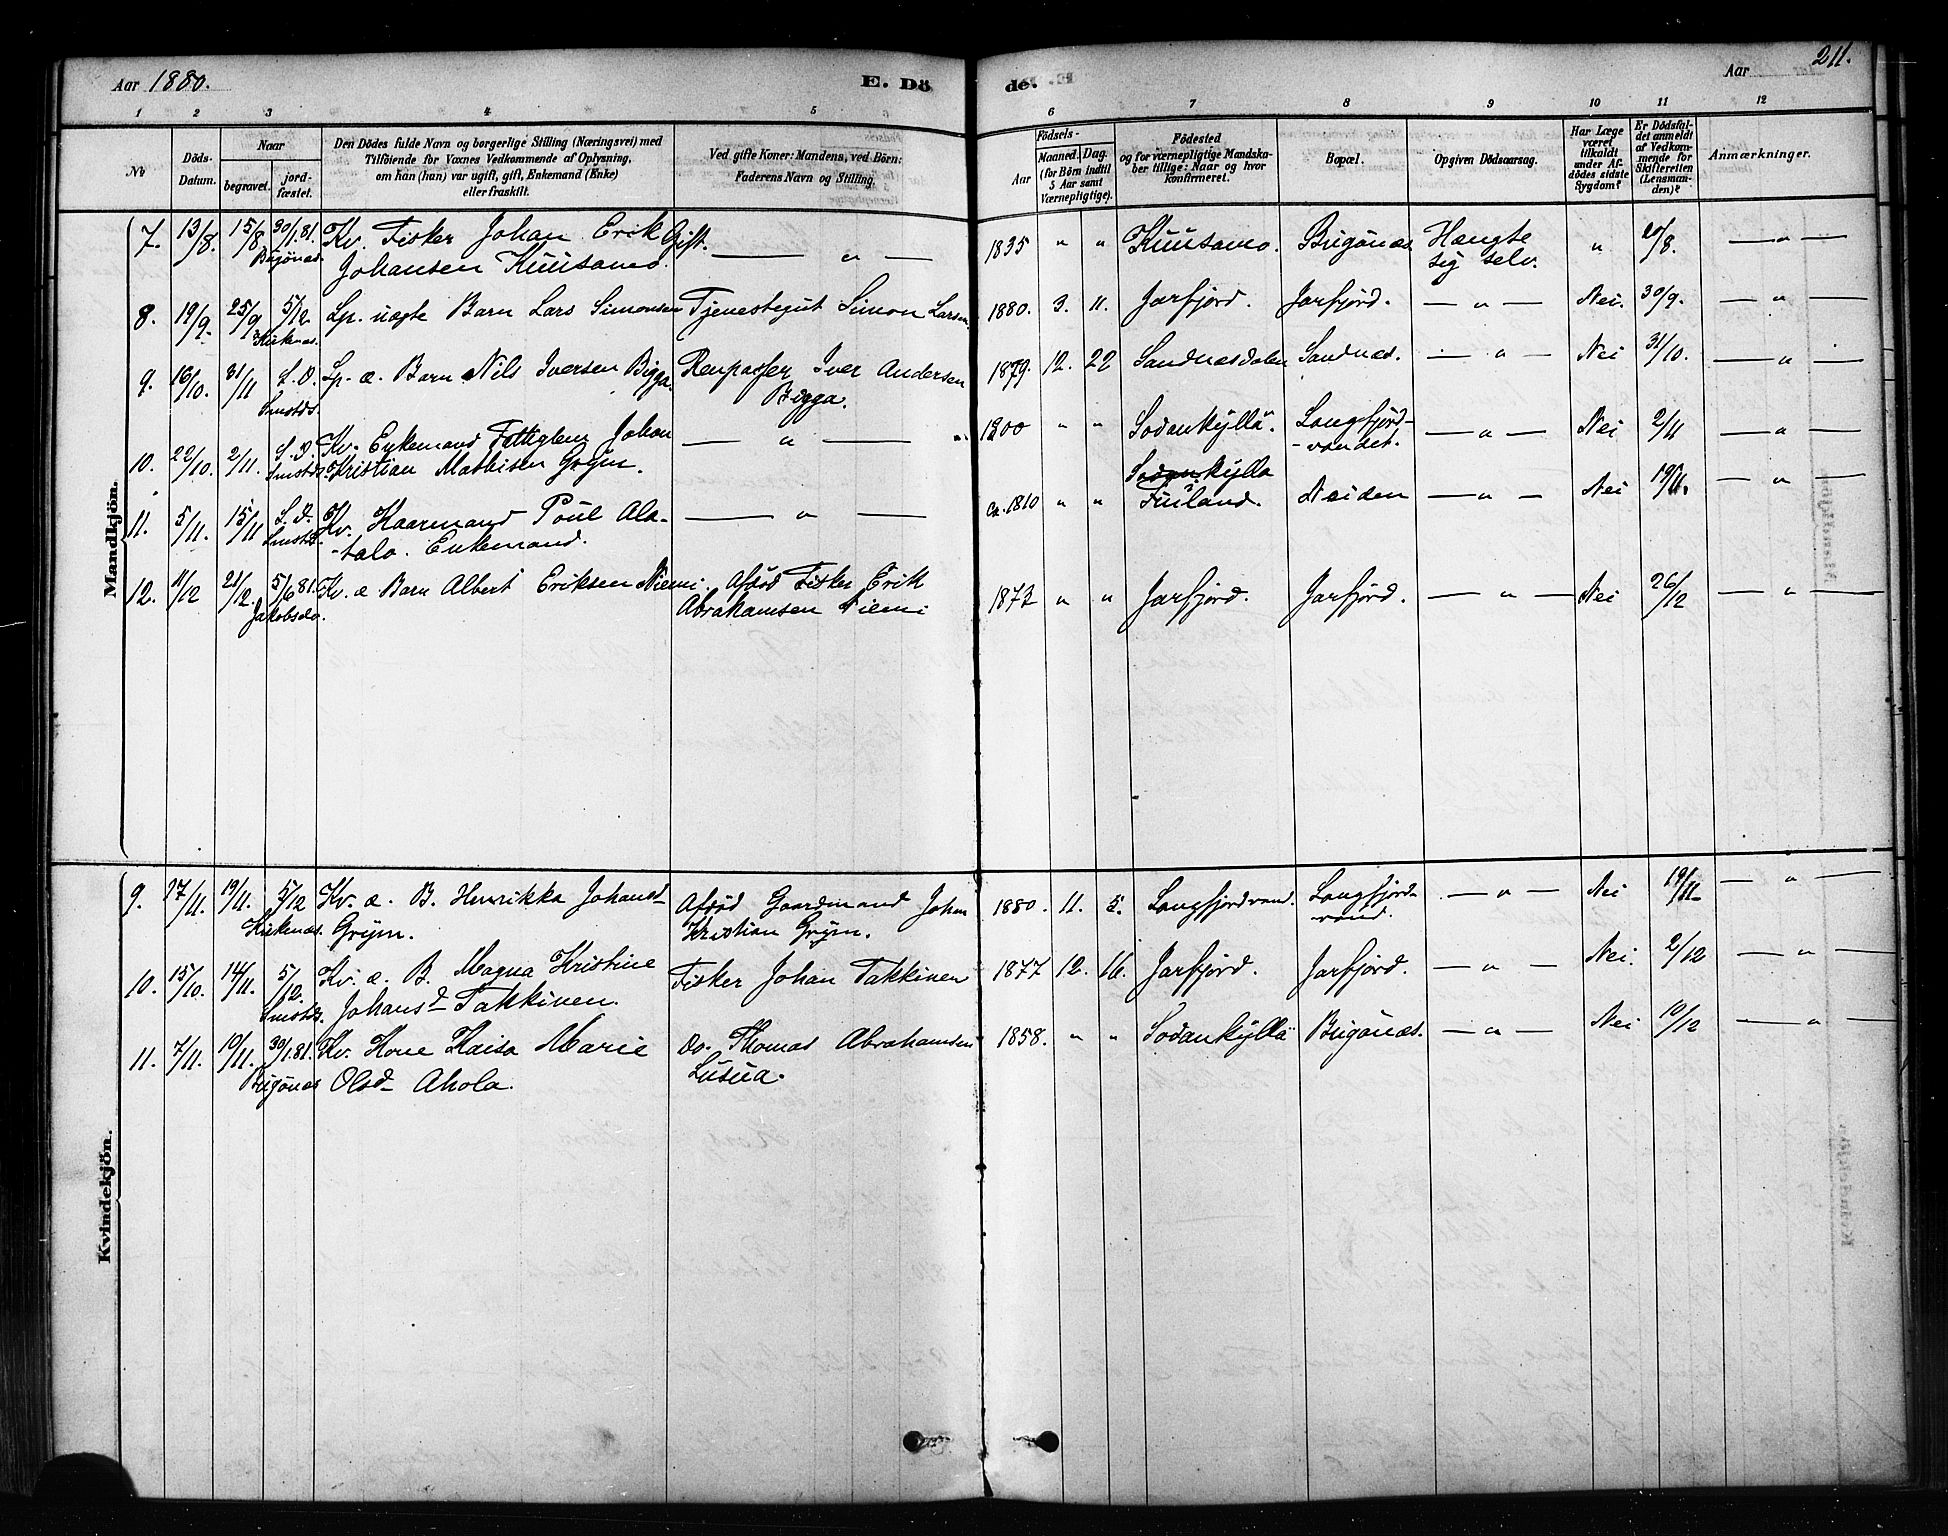 Aar 1880. E. Dö de. Aar 211.
1 2 3 4 5 6 7 8 9 10 11 12
No
Döds-
Datum.
Naar
begravet.
jord-
fæstet.
Den Dödes fulde Navn og borgerlige Stilling (Næringsvei) med
Tilföiende for Voxnes Vedkommende af Oplysning,
om han (hun) var ugift, gift, Enkemand (Enke)
eller fraskilt.
Ved gifte Koner: Mandens, ved Börn:
Faderens Navn og Stilling.
Födsels-
Aar
Maaned. Dag.
(for Börn indtil
5 Aar samt
Værnepligtige).
Födested
og for værnepligtige Mandska-
ber tillige: Naar og hvor
konfirmeret.
Bopæl.
Opgiven Dödsaarsag.
Har Læge
været
tilkaldt
under Af-
dödes sidste
Sygdom?
Er Dödsfal-
det anmeldt
af Vedkom-
mende for
Skifteretten
(Lensman-
den)?
Anmærkninger.
Mandkjön.
7. 13/8. 15/8 30/1.81. Kv. Fisker Johan Erik Gift. — " — 1835 " " Kuusamo. Bugönæs Hængte " 20/8. — " —
Bugönæs. Johansen Kuusamo. sig selv.
8. 19/9. 25/9 5/12. Lp. uægte Barn Lars Simonsen Tjenestegut Simon Larsen. 1880. 3. 11. Jarfjord. Jarfjord. — " — Nei. 30/9. — " —
Kirkenæs.
9. 16/10. 21/11 S.D. Lp. æ. Barn Nils Iversen Bigga. Renpasser Iver Andersen 1879. 12. 22 Sandnæsdalen Sandnæs. — " — Nei 31/10. — " —
Smstds. Bigga.
10. 22/10. 2/11. S.D. Kv. Enkemand Fattiglem Johan — " — 1800 " " Sodankyllä. Langfjord- — " — Nei 2/11 — " —
Smstds. Kristian Mathisen Grym. -vandet.
Sodankylla
11. 5/11. 15/11 S.D. Kv. Kaarmand Poul Ala- — " — ca. 1810 " " Finland. Neiden — " — Nei 19/11. — " —
Smstds. -talo. Enkemand.
12. 11/12 21/12. 5/6 81. Kv. æ Barn Albert Eriksen Niemi Afdöd Fisker Erik 1873 " " Jarfjord. Jarfjord. — " — Nei 26/12 — " —
Jakobselv. Abrahamsen Niemi
Kvindekjön.
9. 17/11. 19/11. 5/12 Kv. æ. B. Henrikka Johansd Afdöd Gaardmand Johan 1880. 11. 5. Langfjordvand. Langfjord- — " — Nei 19/11. — " —
Kirkenæs. Grym. Kristian Grym. vand.
10. 15/10. 14/11. 5/12. Kv. æ. B. Magna Kristine Fisker Johan Takkinen 1877 12. 16. Jarfjord. Jarfjord. — " — Nei. 2/12 — " —
Smstds. Johansd Takkinen.
11. 7/11. 10/11. 30/1.81. Kv. Kone Kaisa Marie Do. Thomas Abrahamsen 1858. " " Sodankyllä Bugönæs. — " — Nei 10/12 — " —
Bugönæs Olsd Ahola. Lusua.